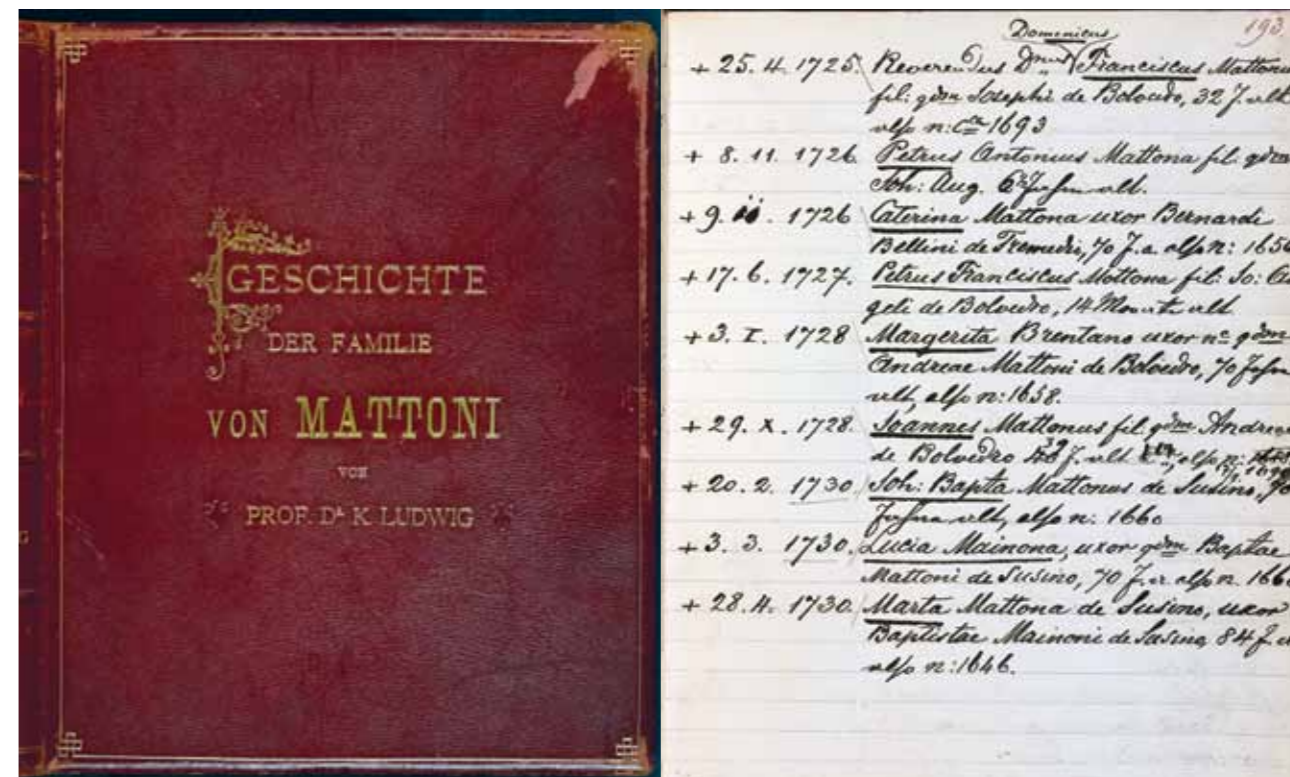 GESCHICHTE
DER FAMILIE
VON MATTONI
VON
PROF. DR. K. LUDWIG
G
193.
Dominicus
+ 25. 4. 1725. Reverendus Dnus Franciscus Mattonus
fil: qdm Josephi de Bolvedro, 32 J. alt
also n: ca 1693
+ 8. 11. 1726 Petrus Antonius Mattona fil: qdm
Joh: Aug. 6 Jahre alt.
+ 9. ii. 1726 Caterina Mattona uxor Bernardi
Bellini de Tremedio, 70 J. a. also n: 1656
+ 17. 6. 1727. Petrus Franciscus Mottona fil: Jo: An
geli de Bolvedro, 14 Monate alt
+ 3. I. 1728 Margerita Brentano uxor nc qdm
Andreae Mattoni de Bolvedro, 70 Jahre
alt, also n: 1658.
+ 29. X. 1728. Joannes Mattonus fil: qdm Andreae
de Bolvedro 39 J. alt also n:
+ 20. 2. 1730 Joh: Bapta Mattonus de Susino, 70
Jahre alt, also n: 1660
+ 3. 3. 1730. Lucia Mainona, uxor qdm Baptae
Mattoni de Susino, 70 J. a. also n. 1660
+ 28. 4. 1730. Marta Mattona de Susino, uxor
Baptistae Mainoni de Susino, 84 J. a
also n: 1646.